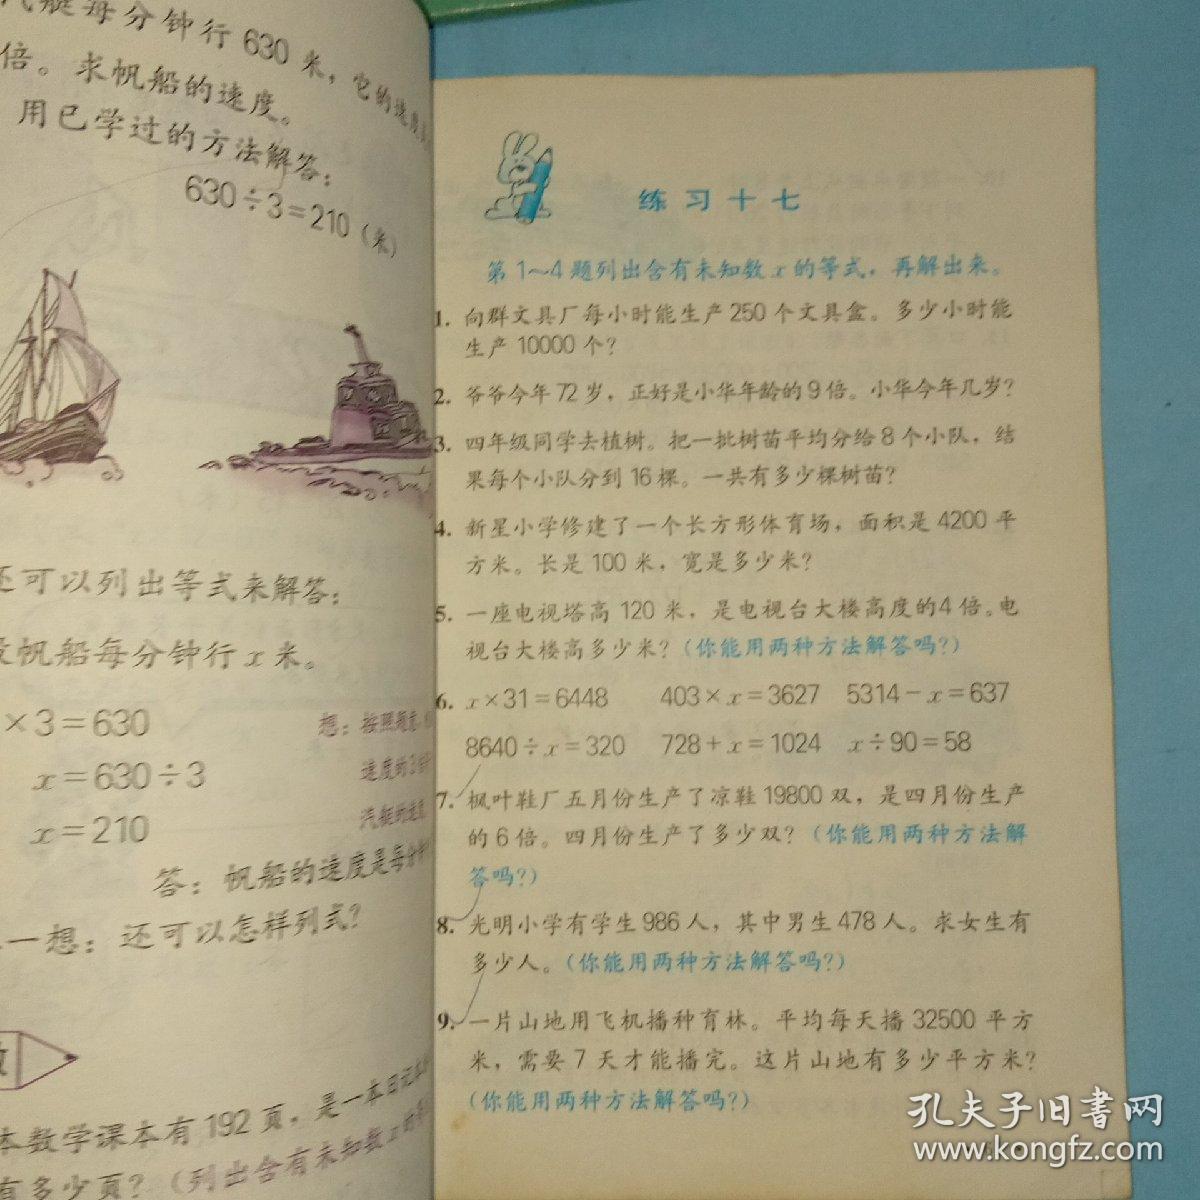 汽艇每分钟行630米，它的速度
倍。求帆船的速度。
用已学过的方法解答：
630÷3=210（米）
还可以列出等式来解答：
设帆船每分钟行x米。
×3=630
想：按照题意，
x=630÷3
速度的3倍
x=210
汽艇的速度
答：帆船的速度是每分钟
一想：还可以怎样列式？
本数学课本有192页，是一本日记
有多少页？（列出含有未知数x的
练习十七
第1～4题列出含有未知数x的等式，再解出来。
1. 向群文具厂每小时能生产250个文具盒。多少小时能
生产10000个？
2. 爷爷今年72岁，正好是小华年龄的9倍。小华今年几岁？
3. 四年级同学去植树。把一批树苗平均分给8个小队，结
果每个小队分到16棵。一共有多少棵树苗？
4. 新星小学修建了一个长方形体育场，面积是4200平
方米。长是100米，宽是多少米？
5. 一座电视塔高120米，是电视台大楼高度的4倍。电
视台大楼高多少米？（你能用两种方法解答吗？）
6. x×31=6448 403×x=3627 5314－x=637
8640÷x=320 728+x=1024 x÷90=58
7. 枫叶鞋厂五月份生产了凉鞋19800双，是四月份生产
的6倍。四月份生产了多少双？（你能用两种方法解
答吗？）
8. 光明小学有学生986人，其中男生478人。求女生有
多少人。（你能用两种方法解答吗？）
9. 一片山地用飞机播种育林。平均每天播32500平方
米，需要7天才能播完。这片山地有多少平方米？
（你能用两种方法解答吗？）
孔夫子旧书网
www.kongfz.com